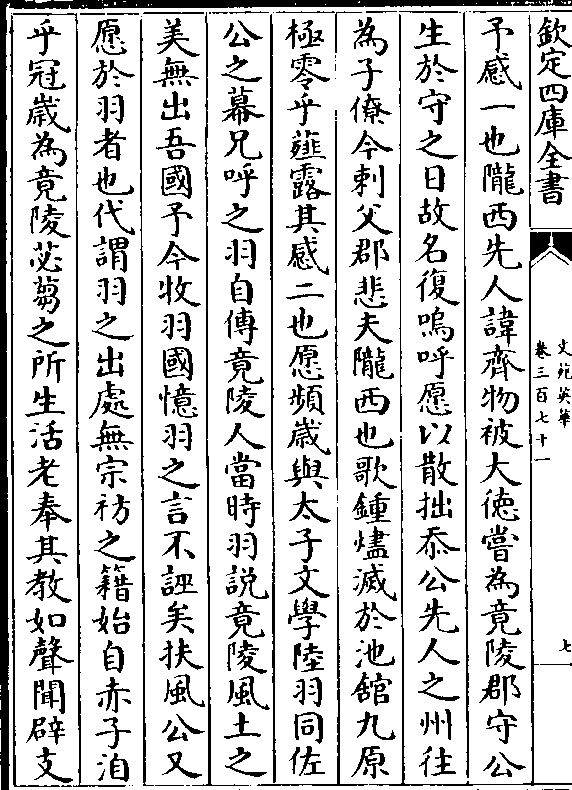 欽定四庫全書
文苑英華
卷三百七十一
七
予感一也隴西先人諱齊物被大徳嘗為竟陵郡守公
生於守之日故名復嗚呼愿以散拙忝公先人之州往
為子僚今刺父郡悲夫隴西也歌鍾燼滅於池舘九原
極零乎薤露其感二也愿頻歳與太子文學陸羽同佐
公之幕兄呼之羽自傳竟陵人當時羽說竟陵風土之
美無出吾國予今牧羽國憶羽之言不誣矣扶風公又
愿於羽者也代謂羽之出處無宗祊之籍始自赤子洎
乎冠歳為竟陵苾蒭之所生活老奉其教如聲聞辟支